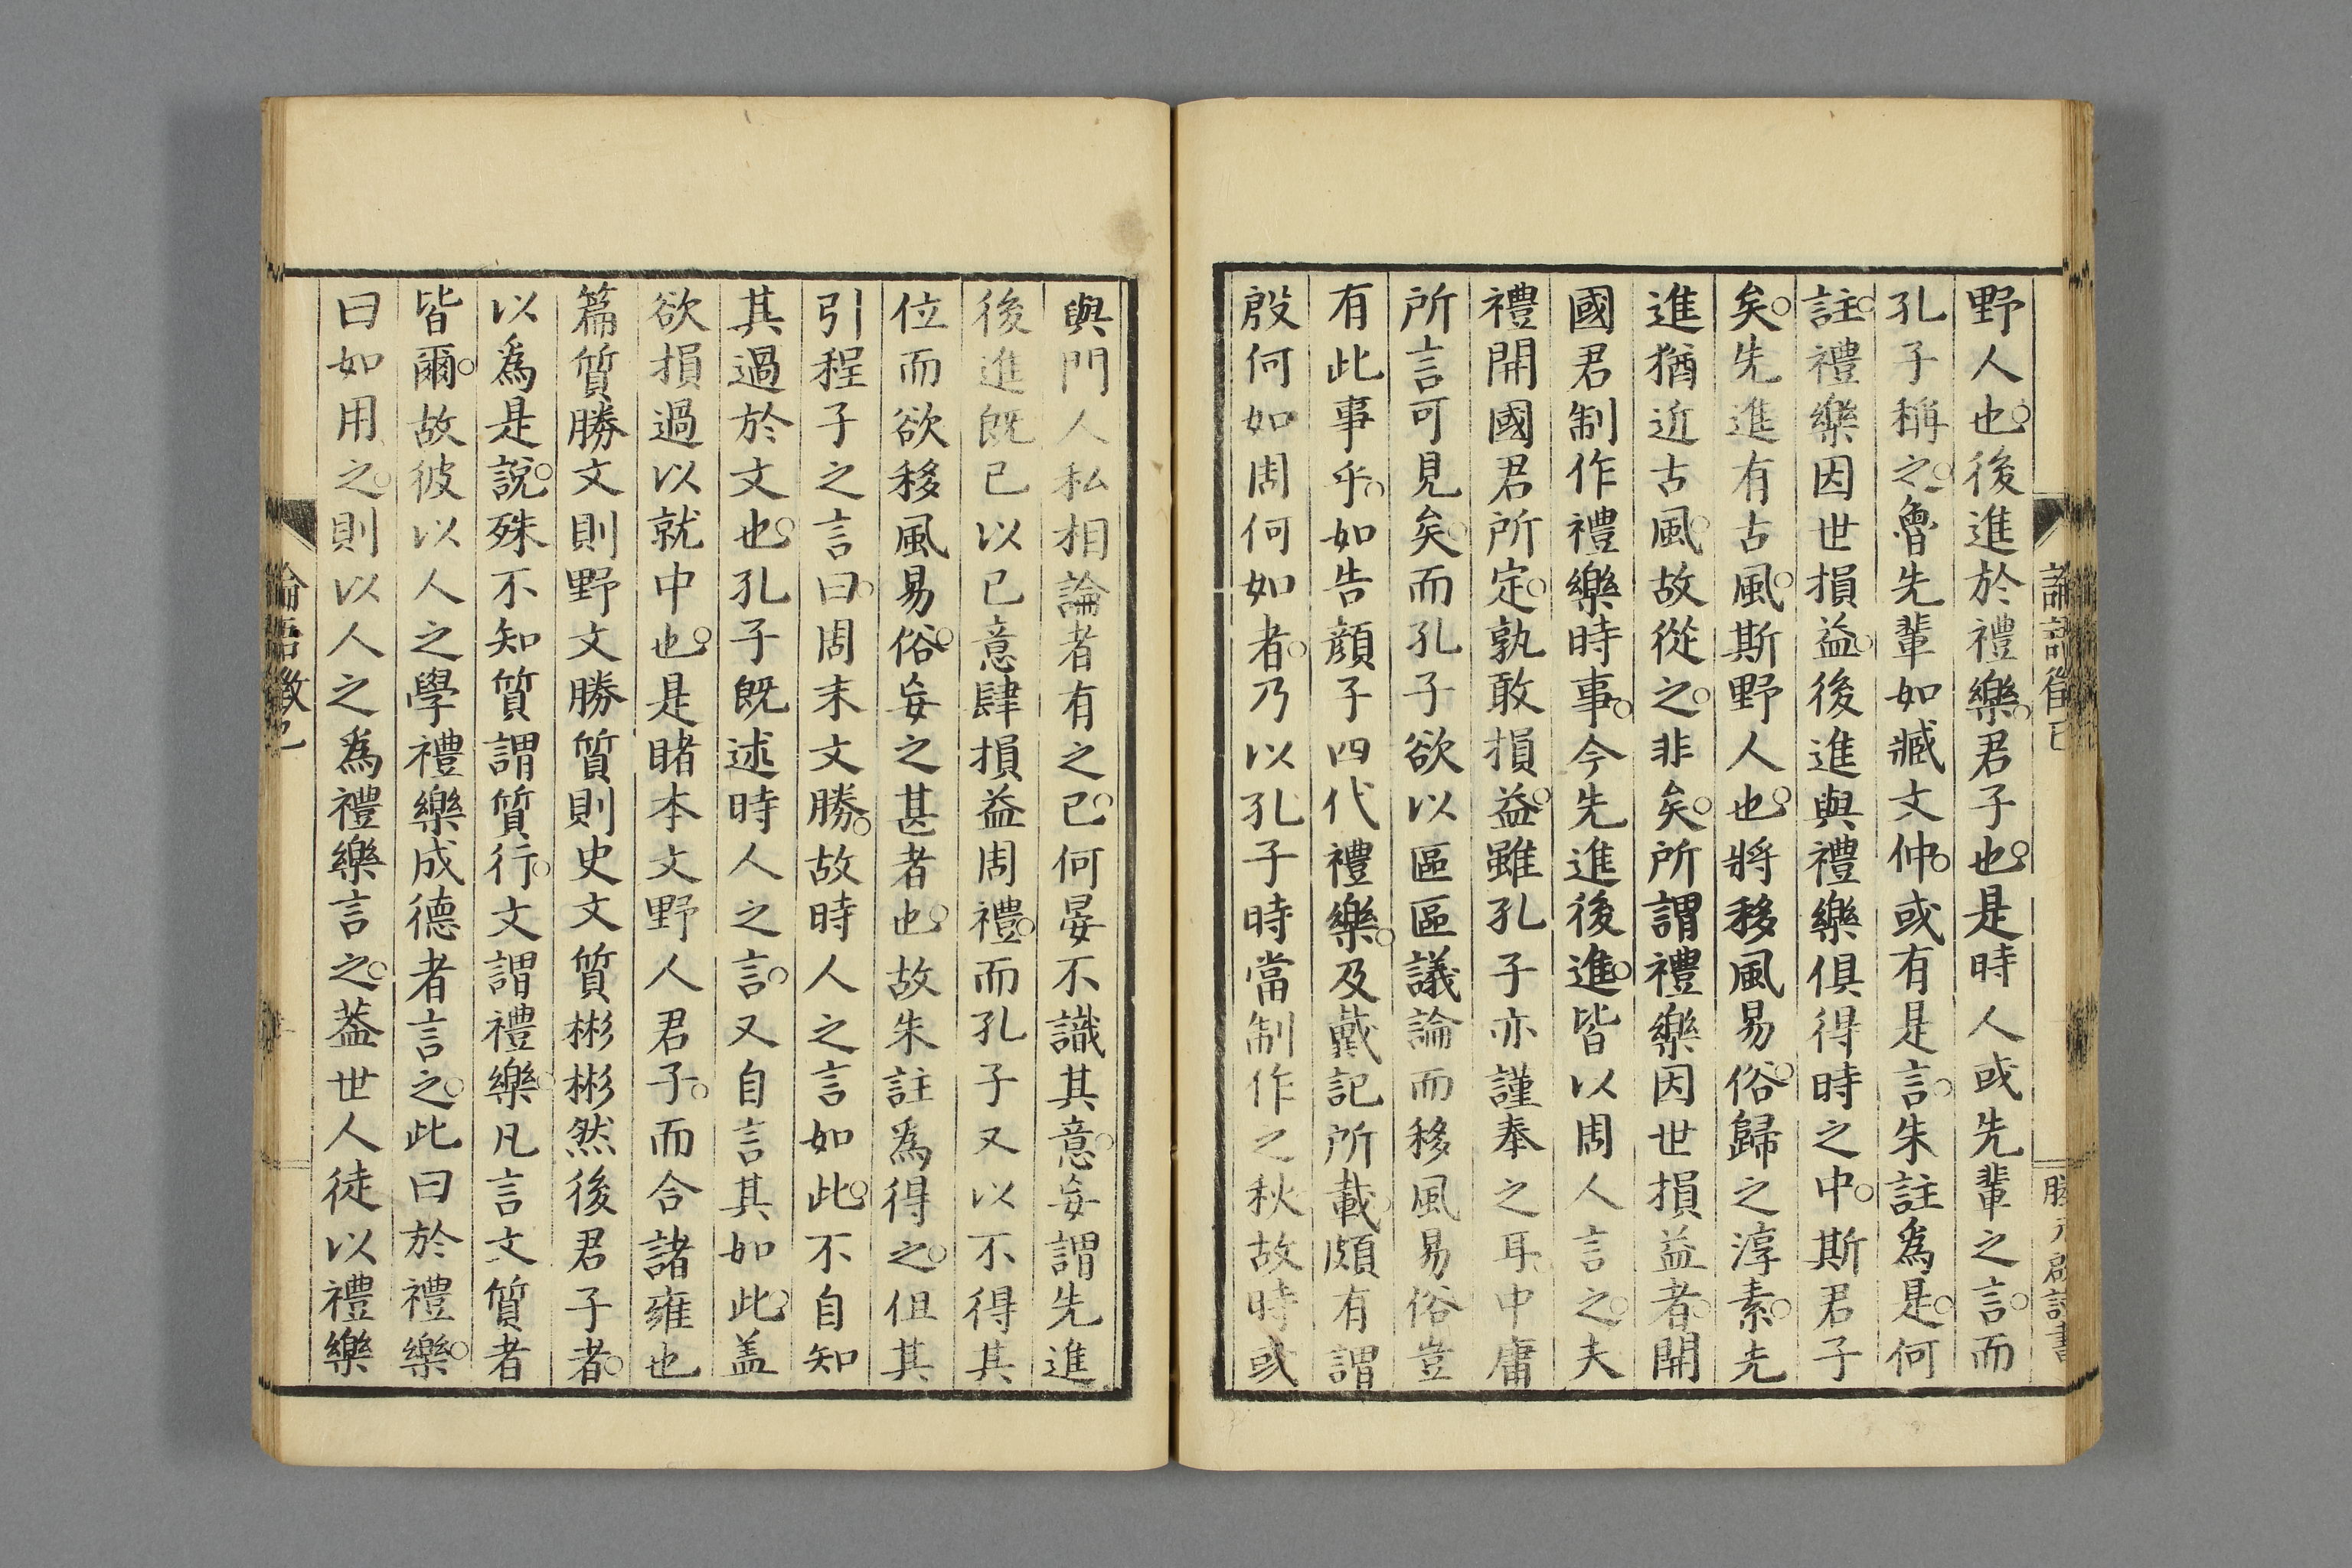 野人也後進於禮樂君子也是時人或先輩之言而
孔子稱之魯先輩如臧文仲或有是言朱註爲是何
註禮樂因世損益後進與禮樂俱得時之中斯君子
矣先進有古風斯野人也將移風易俗歸之淳素先
進猶近古風故從之非矣所謂禮樂因世損益者開
國君制作禮樂時事今先進後進皆以周人言之夫
禮開國君所定孰敢損益雖孔子亦謹奉之耳中庸
所言可見矣而孔子欲以區區議論而移風易俗豈
有此事乎如告顏子四代禮樂及戴記所載頗有謂
殷何如周何如者乃以孔子時當制作之秋故時或
與門人私相論者有之已何晏不識其意妄謂先進
後進既已以已意肆損益周禮而孔子又以不得其
位而欲移風易俗妄之甚者也故朱註爲得之但其
引程子之言曰周末文勝故時人之言如此不自知
其過於文也孔子既述時人之言又自言其如此盖
欲損過以就中也是睹本文野人君子而合諸雍也
篇質勝文則野文勝質則史文質彬彬然後君子者
以爲是說殊不知質謂質行文謂禮樂凡言文質者
皆爾故彼以人之學禮樂成德者言之此曰於禮樂
曰如用之則以人之爲禮樂言之葢世人徒以禮樂
論語徴已